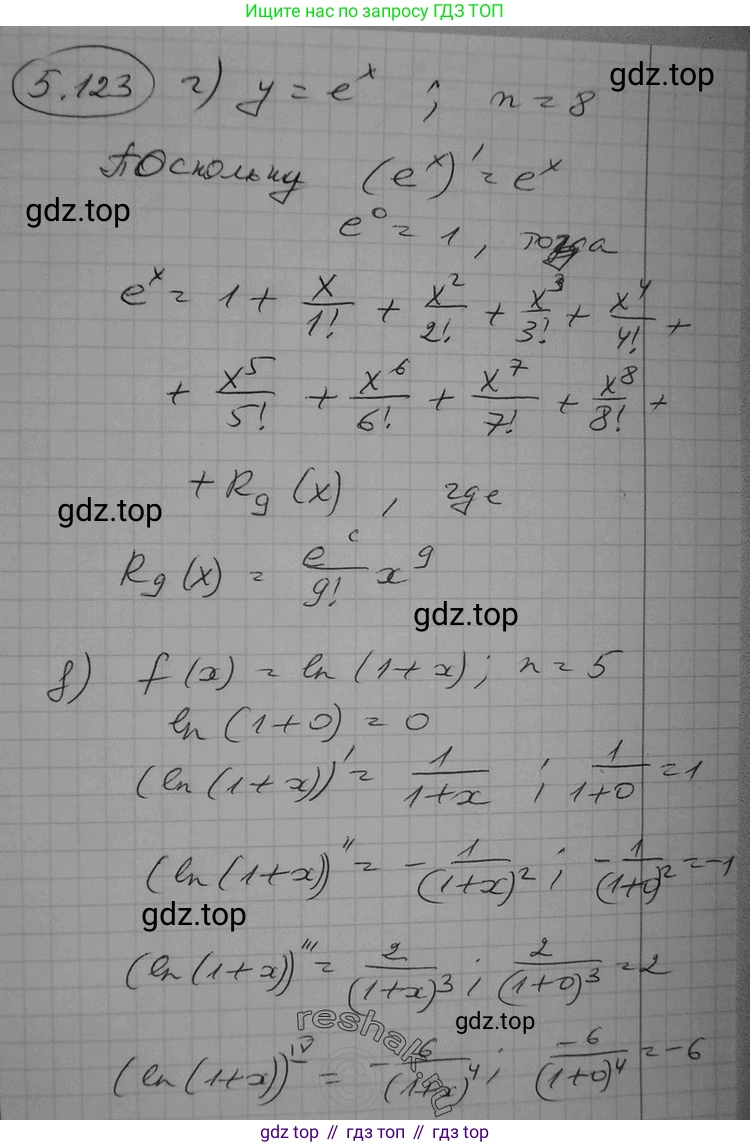 Ищите нас по запросу ГДЗ ТОП
5.123 г) y = e^x ; n = 8
gdz.top
Поскольку (e^x)' = e^x
gdz.top
e^0 = 1, тогда
e^x = 1 + x/1! + x^2/2! + x^3/3! + x^4/4! +
+ x^5/5! + x^6/6! + x^7/7! + x^8/8! +
+ R_9 (x), где
gdz.top
R_9 (x) = e^c/9! x^9
gdz.top
д) f(x) = ln(1+x); n = 5
ln(1+0) = 0
(ln(1+x))' = 1/(1+x) ; 1/(1+0) = 1
(ln(1+x))'' = -1/(1+x)^2 ; -1/(1+0)^2 = -1
gdz.top
(ln(1+x))''' = 2/(1+x)^3 ; 2/(1+0)^3 = 2
gdz.top
reshak.ru
(ln(1+x))^IV = -6/(1+x)^4 ; -6/(1+0)^4 = -6
gdz top // гдз топ // gdz.top